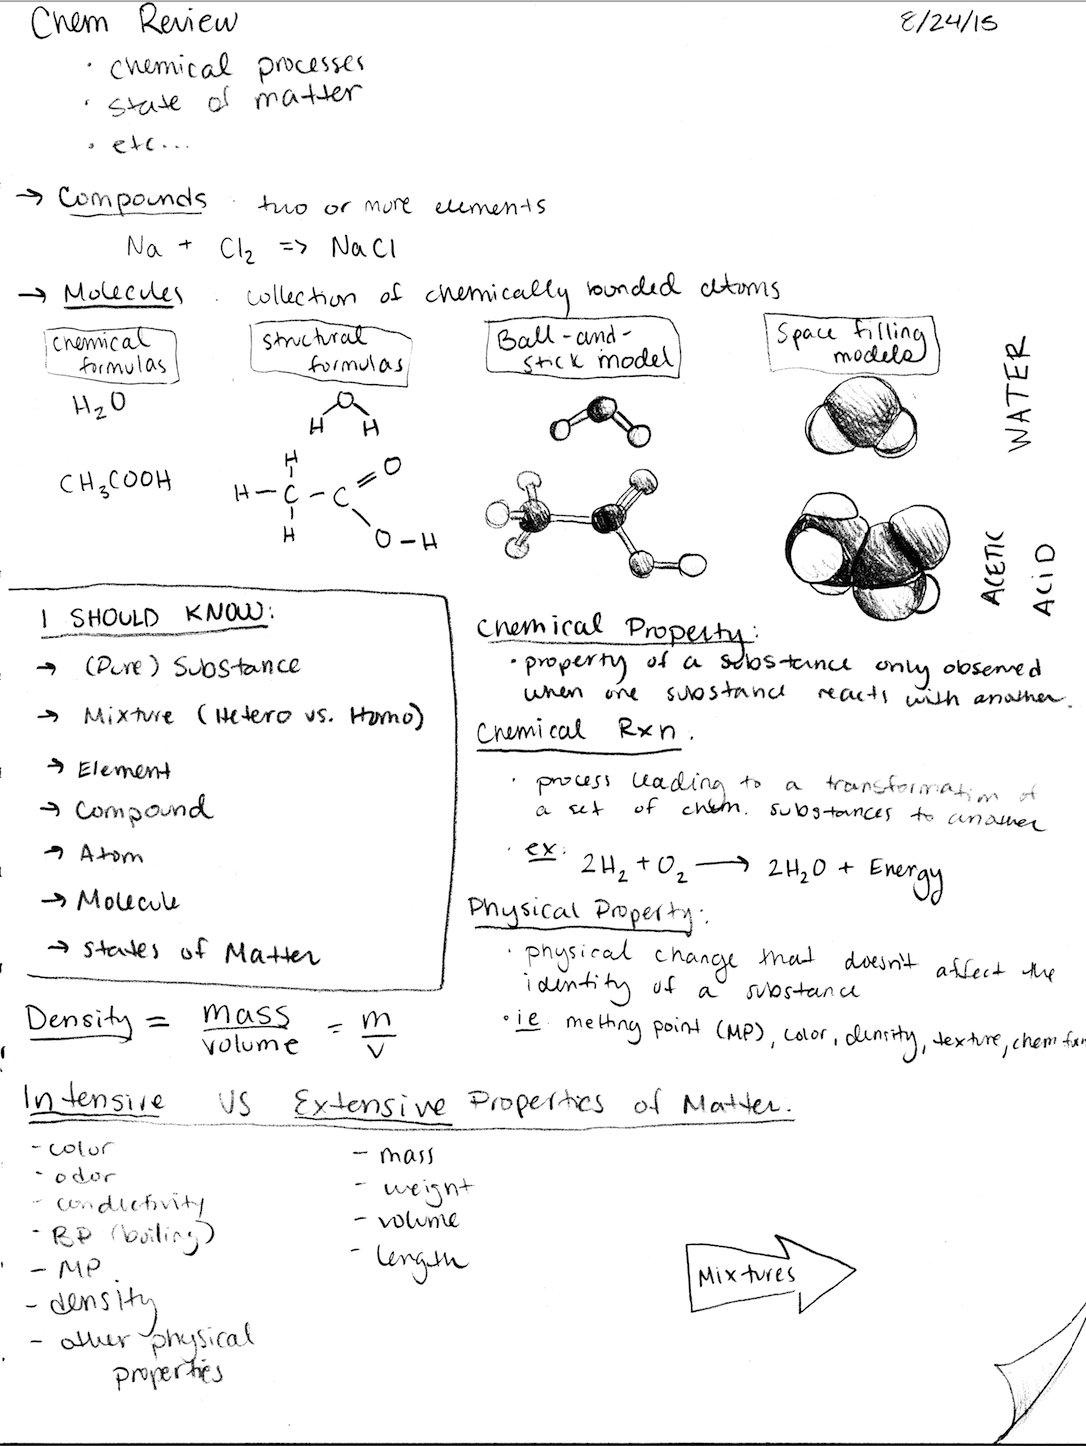 Chem Review
8/24/15
· chemical processes
· state of matter
· etc...
→ Compounds · two or more elements
Na + Cl₂ => NaCl
→ Molecules · collection of chemically bounded atoms
chemical
formulas
structural
formulas
Ball-and-
stick model
Space filling
models
H₂O
O
H H
WATER
CH₃COOH
H
H-C-C
H
O
O-H
ACETIC
ACID
I SHOULD KNOW:
→ (Pure) Substance
→ Mixture (Hetero vs. Homo)
→ Element
→ Compound
→ Atom
→ Molecule
→ States of Matter
Chemical Property:
· property of a substance only observed
when one substance reacts with another.
Chemical Rxn.
· process leading to a transformation of
a set of chem. substances to another
· ex: 2H₂ + O₂ → 2H₂O + Energy
Physical Property:
· physical change that doesn't affect the
identity of a substance
· ie melting point (MP), color, density, texture, chem
Density = mass/volume = m/v
Intensive VS Extensive Properties of Matter.
- color
- odor
- conductivity
- BP (boiling)
- MP
- density
- other physical
properties
- mass
- weight
- volume
- length
Mixtures